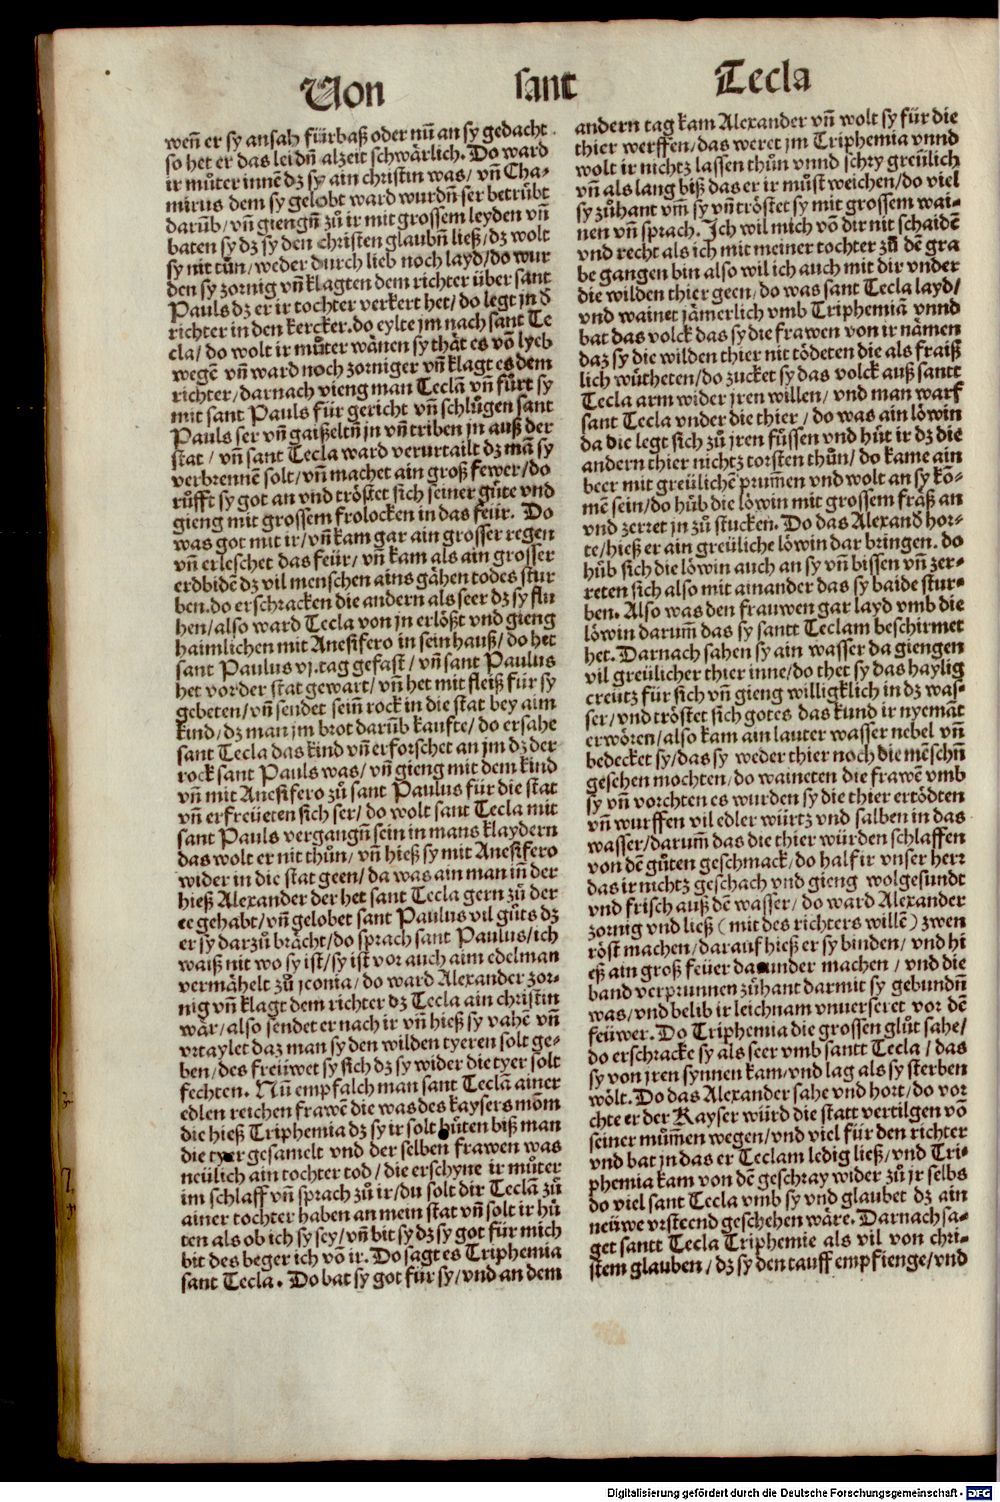 Von sant Tecla
weñ er sy ansah fürbaß oder nũ an sy gedacht
so het er das leidñ alzeit schwärlich. Do ward
ir můter innẽ dz sy ain christin was/ vñ Cha-
mirus dem sy gelobt ward wurdñ ser betrübt
darũb/ vñ giengñ zů ir mit grossem leyden vñ
baten sy dz sy den christen glaubñ ließ/ dz wolt
sy nit tůn/ weder durch lieb noch layd/ do wur
den sy zornig vñ klagten dem richter über sant
Pauls dz er ir tochter verkert het/ do legt jn d̕
richter in den kercker. do eylte jm nach sant Te
cla/ do wolt ir můter wänen sy thät es võ lyeb
wegẽ vñ ward noch zorniger vñ klagt es dem
richter/ darnach vieng man Teclã vñ fůrt sy
mit sant Pauls für gericht vñ schlůgen sant
Pauls ser vñ gaißeltñ jn vñ triben jn auß der
stat/ vñ sant Tecla ward verurtailt dz mã sy
verbrennẽ solt/ vñ machet ain groß fewer/ do
růfft sy got an vnd tröstet sich seiner güte vnd
gieng mit grossem frolocken in das feür. Do
was got mit ir/ vñ kam gar ain grosser regen
vñ erleschet das feür/ vñ kam als ain grosser
erdbidẽ dz vil menschen ains gähen todes stur
ben. do erschracken die andern als seer dz sy flu
hen/ also ward Tecla von jn erlößt vnd gieng
haimlichen mit Anesifero in sein hauß/ do het
sant Paulus vj. tag gefast/ vñ sant Paulus
het vor der stat gewart/ vñ het mit fleiß für sy
gebeten/ vñ sendet seinñ rock in die stat bey aim
kind/ dz man jm brot darũb kaufte/ do ersahe
sant Tecla das kind vñ erforschet an jm dz der
rock sant Pauls was/ vñ gieng mit dem kind
vñ mit Anesifero zů sant Paulus für die stat
vñ erfreüeten sich ser/ do wolt sant Tecla mit
sant Pauls vergangñ sein in mans klaydern
das wolt er nit thůn/ vñ hieß sy mit Anesifero
wider in die stat geen/ da was ain man in der
hieß Alexander der het sant Tecla gern zů der
ee gehabt/ vñ gelobet sant Paulus vil gůts dz
er sy darzů brächt/ do sprach sant Paulus/ ich
waiß nit wo sy ist/ sy ist vor auch aim edelman
vermähelt zů jconia/ do ward Alexander zor-
nig vñ klagt dem richter dz Tecla ain christin
wär/ also sendet er nach ir vñ hieß sy vahẽ vñ
vrtaylet daz man sy den wilden tyeren solt ge-
ben/ des freüwet sy sich dz sy wider die tyer solt
fechten. Nũ empfalch man sant Teclã ainer
edlen reichen frawẽ die was des kaysers mõm
die hieß Triphemia dz sy ir solt hüten biß man
die tyer gesamelt vnd der selben frawen was
neülich ain tochter tod/ die erschyne ir můter
im schlaff vñ sprach zů ir/ du solt dir Teclã zů
ainer tochter haben an mein stat vñ solt ir hü
ten als ob ich sy sey/ vñ bit sy dz sy got für mich
bit des beger ich võ ir. Do sagt es Triphemia
sant Tecla. Do bat sy got für sy/ vnd an dem
andern tag kam Alexander vñ wolt sy für die
thier werffen/ das weret jm Triphemia vnnd
wolt ir nichtz lassen thůn vnnd schry greülich
vñ als lang biß das er ir můst weichen/ do viel
sy zůhant vm̃ sy vñ tröstet sy mit grossem wai-
nen vñ sprach. Ich wil mich võ dir nit schaidẽ
vnd recht als ich mit meiner tochter zů dẽ gra
be gangen bin also wil ich auch mit dir vnder
die wilden thier geen/ do was sant Tecla layd/
vnd wainet jämerlich vmb Triphemiã vnnd
bat das volck das sy die frawen von ir nämen
daz sy die wilden thier nit tödeten die als fraiß
lich wütheten/ do zucket sy das volck auß santt
Tecla arm wider jren willen/ vnd man warf
sant Tecla vnder die thier/ do was ain löwin
da die legt sich zů jren füssen vnd hůt ir dz die
andern thier nichtz torsten thůn/ do kame ain
beer mit greülichẽ prum̃en vnd wolt an sy kõ-
mẽ sein/ do hůb die löwin mit grossem fraß an
vnd zerret jn zů stucken. Do das Alexand̕ hor-
te/ hieß er ain greüliche löwin dar bringen. do
hůb sich die löwin auch an sy vñ bissen vñ zer-
reten sich also mit ainander das sy baide stur-
ben. Also was den frauwen gar layd vmb die
löwin darum̃ das sy santt Teclam beschirmet
het. Darnach sahen sy ain wasser da giengen
vil greülicher thier inne/ do thet sy das haylig
creütz für sich vñ gieng willigklich in dz was-
ser/ vnd tröstet sich gotes das kund ir nyemãt
erwören/ also kam ain lauter wasser nebel vñ
bedecket sy/ das sy weder thier noch die mẽschñ
gesehen mochten/ do waineten die frawẽ vmb
sy vñ vorchten es wurden sy die thier ertödten
vñ wurffen vil edler würtz vnd salben in das
wasser/ darum̃ das die thier würden schlaffen
von dẽ gůten geschmack/ do half ir vnser herz
das ir nichtz geschach vnd gieng wolgesundt
vnd frisch auß dẽ wasser/ do ward Alexander
zornig vnd ließ (mit des richters willẽ) zwen
röst machen/ darauf hieß er sy binden/ vnd hi
eß ain groß feüer darunder machen/ vnd die
band verprunnen zůhant darmit sy gebundñ
was/ vnd belib ir leichnam vnuerseret vor dẽ
feüwer. Do Triphemia die grossen glůt sahe/
do erschracke sy als seer vmb santt Tecla/ das
sy von jren synnen kam/ vnd lag als sy sterben
wölt. Do das Alexander sahe vnd hort/ do vor
chte er der Kayser würd die statt vertilgen võ
seiner můmen wegen/ vnd viel für den richter
vnd bat jn das er Teclam ledig ließ/ vnd Tri-
phemia kam von dẽ geschray wider zů jr selbs
do viel sant Tecla vmb sy vnd glaubet dz ain
neüwe vrsteend geschehen wäre. Darnach sa-
get santt Tecla Triphemie als vil von chri-
stem glauben/ dz sy den tauff empfienge/ vnd
Digitalisierung gefördert durch die Deutsche Forschungsgemeinschaft - DFG